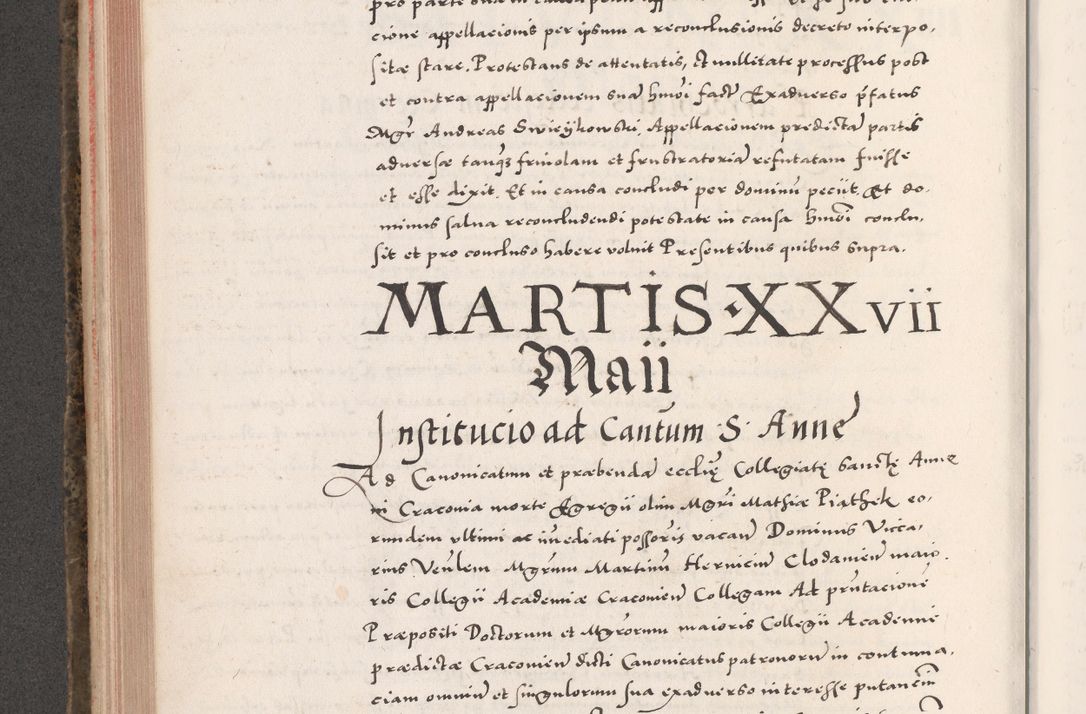 cione appellacionis per ipsum a reconclusionis decreto interpo,
sitæ stare. Protestans de attentatis, et nullitate processus post
et contra appellacionem suam hmõi fact Exaduerso p̃fatus
Mgr̃ Andreas Swieykowski, Appellacionem predictam partis
aduersæ tanqz friuolam et frustratoriam refutatam fuisse
et esse dixit. Et in causa concludi per dominũ peciit. Et do,
minus salua reconcludendi potestate in causa hmõi conclu,
sit et pro concluso habere voluit Presentibus quibus supra.
MARTIS·XXvii
Maii
Institucio ad Cantum S. Anne
Ad Canonicatum et præbendã ecclię Collegiatę Sanctę Annę
in Craconia morte Egregii olim Mgr̃i Mathiæ Piathek eo,
rundem vltimi ac im̃ediati possoris vacañ Dominus Vicca,
rius Veñlem Mgrum Martinũ Hernicium Clodawień maio
ris Collegii Academiæ Cracouień Collegam Ad pñtacionẽ
Præpositi Doctorum et Mgrorum maioris Collegii Academiæ
prædictæ Cracouień dicti Canonicatus patronorũ in contuma,
ciam omniũ et singulorum sua exaduerso interesse putanciũ